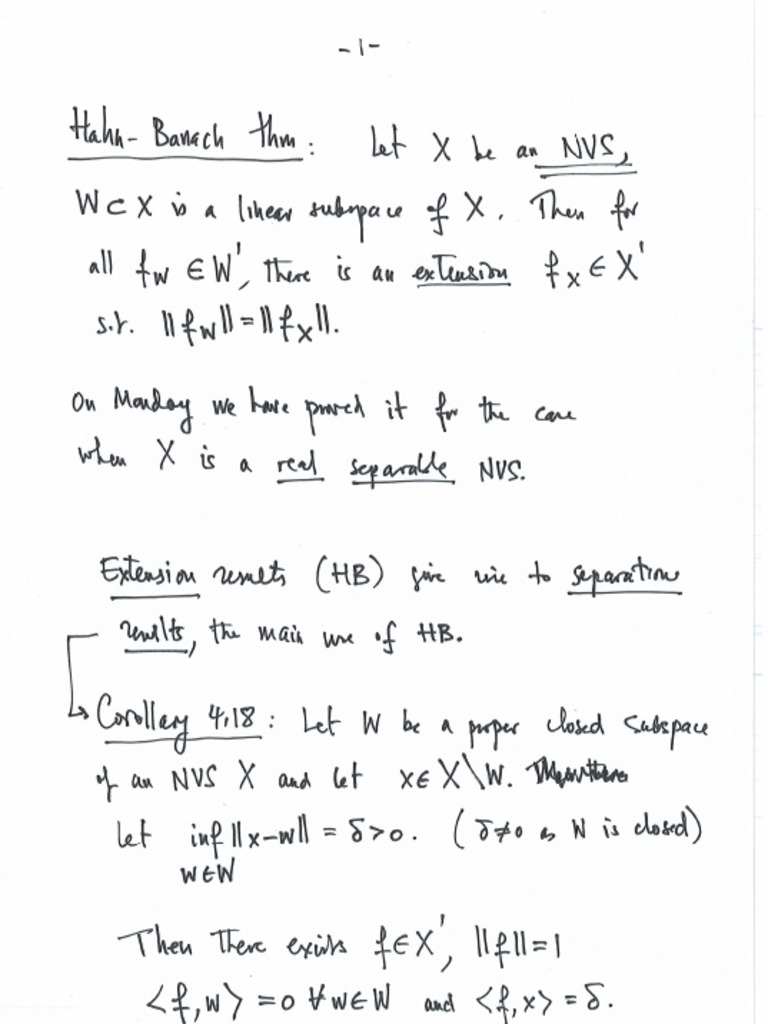 -1-
Hahn-Banach thm: Let X be an NVS,
W⊂X is a linear subspace of X. Then for
all f_W ∈ W', there is an extension f_X ∈ X'
s.t. ||f_W|| = ||f_X||.
On Monday we have proved it for the case
when X is a real separable NVS.
Extension results (HB) give rise to separation
results, the main use of HB.
Corollary 4.18: Let W be a proper closed subspace
of an NVS X and let x∈X\W.
Let inf ||x-w|| = δ>0. (δ≠0 as W is closed)
w∈W
Then there exists f∈X', ||f||=1
<f,w> =0 ∀w∈W and <f,x> = δ.